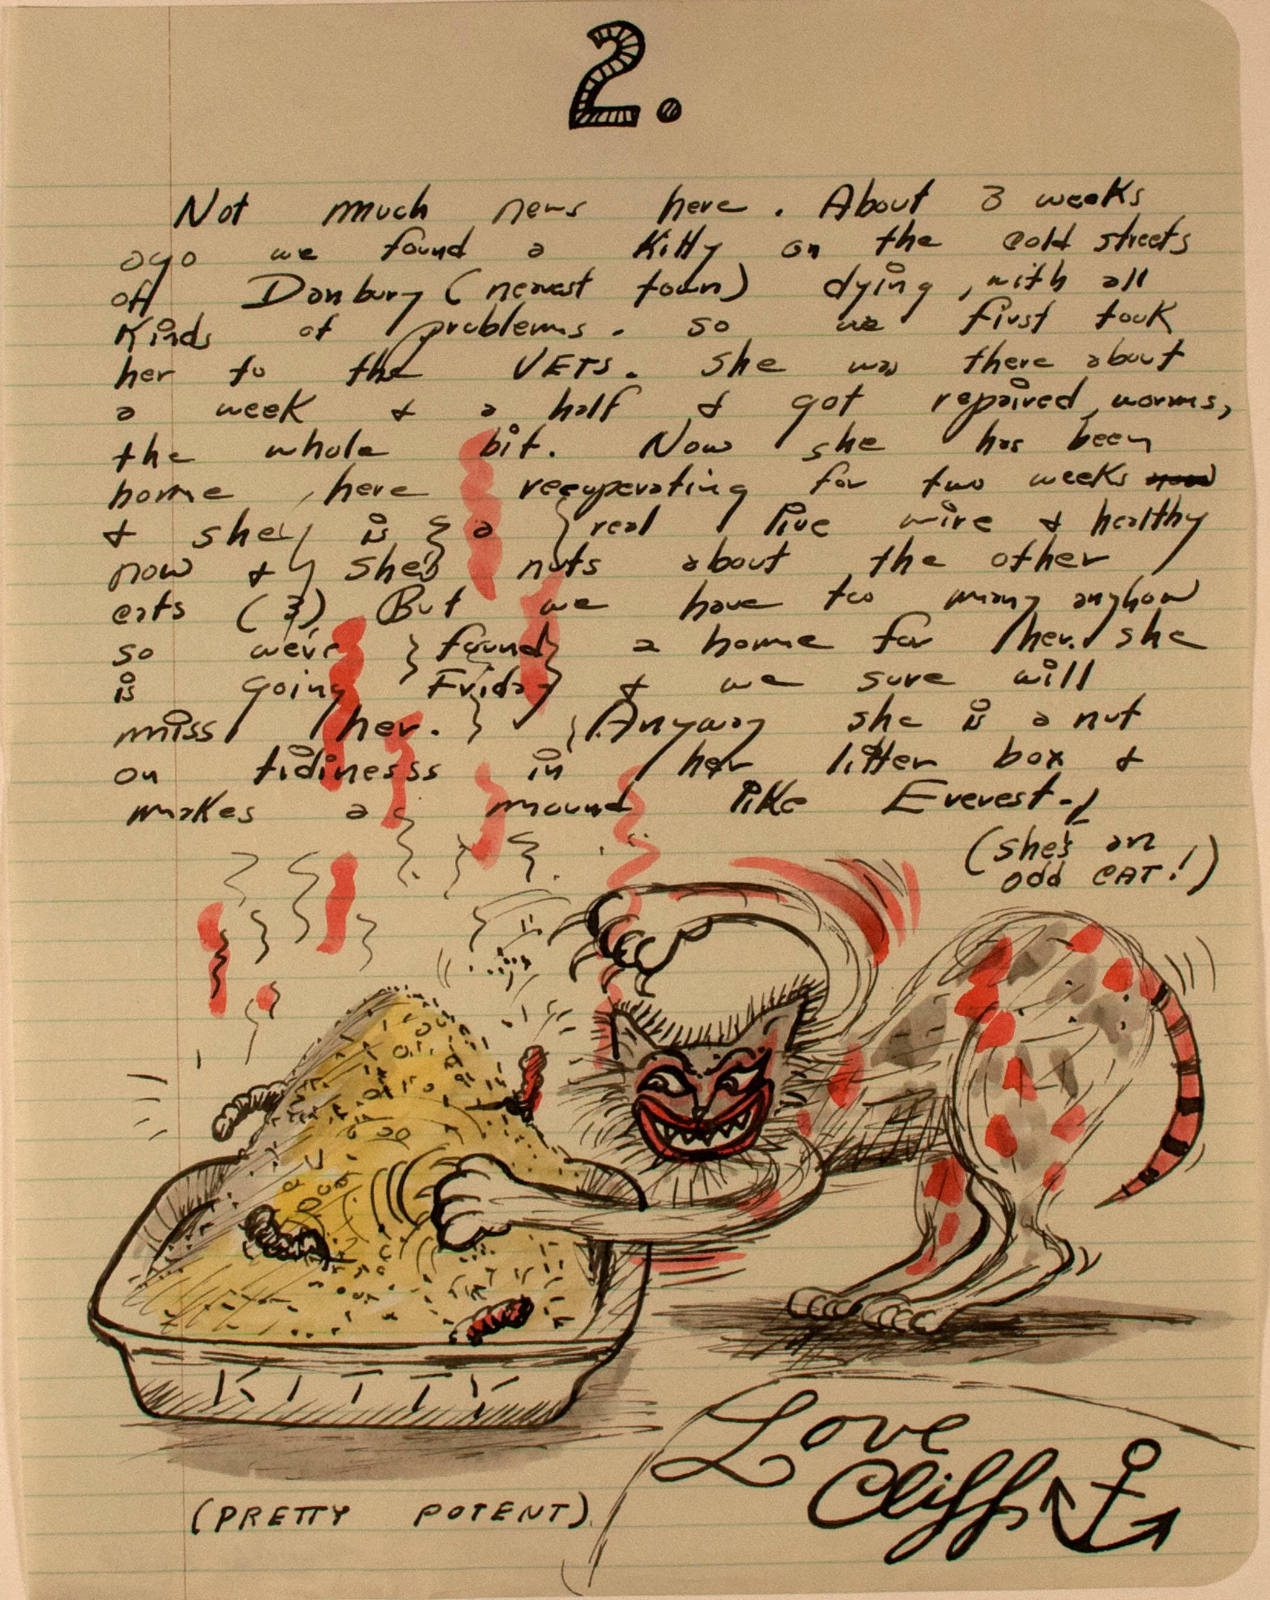 2.
Not much news here. About 3 weeks
ago we found a Kitty on the cold streets
off Danbury (nearest town) dying, with all
Kinds of problems. so we first took
her to the VETS. She was there about
a week & a half & got repaired, worms,
the whole bit. Now she has been
home here recuperating for two weeks now
& she is a real live wire & healthy
now & she's nuts about the other
cats (3) But we have too many anyhow
so we've found a home for her. she
is going Friday & we sure will
miss her. Anyway she is a nut
on tidinesss in her litter box &
makes a mound like Everest-
(she's an
odd CAT!)
KITTY
(PRETTY POTENT)
Love
Cliff